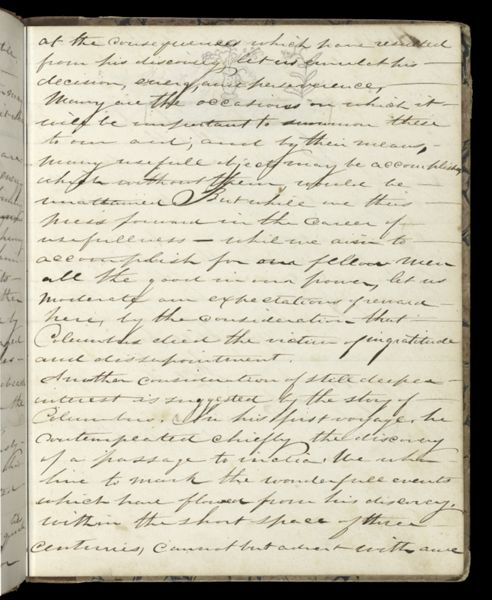 at the consequences which have resulted
from his discovery, let us emulate his
decision, energy, and perseverence,
Many are the occasions on which it
will be important to summon these
to our aid; and by their means,
many usefull objects may be accomplished
which without them, would be
unattained But while we thus
press forward in the career of
usefullness – while we aim to
accomplish for our fellow men
all the good in our power, let us
moderate our expectations of reward
here, by the consideration that
Columbus died the victim of ingratitude
and dissapointment.
Another consideration of still deeper
interest is suggested by the story of
Columbus. In his first voyage, he
contemplated chiefly the discovery
of a passage to india. We who
live to mark the wonderfull events
which have flowed from his discovery,
within the short space of three
centuries, cannot but advert with awe